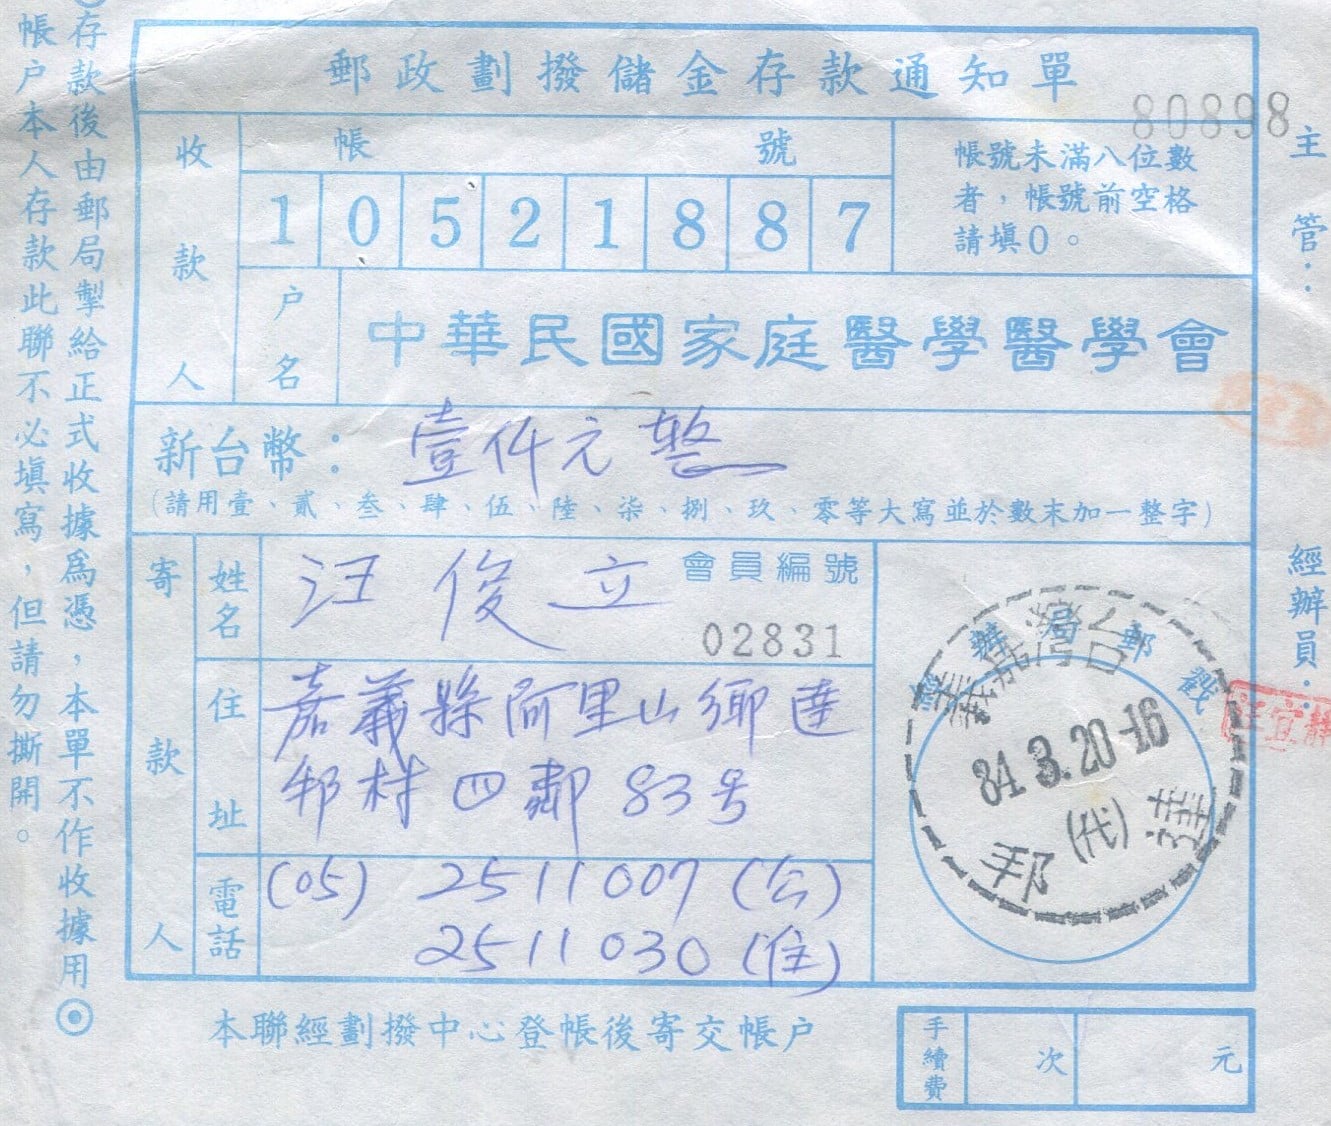 郵政劃撥儲金存款通知單
80898
收款人
帳號
10521887
帳號未滿八位數
者，帳號前空格
請填0。
戶名
中華民國家庭醫學醫學會
新台幣：壹仟元整
(請用壹、貳、叁、肆、伍、陸、柒、捌、玖、零等大寫並於數末加一整字)
寄款人
姓名
汪俊立
會員編號
02831
住址
嘉義縣阿里山鄉達
邦村四鄰83号
電話
(05) 2511007 (公)
2511030 (住)
辦局郵戳
嘉義 台灣
84.3.20-16
(代)
達邦
主管：
經辦員：
本聯經劃撥中心登帳後寄交帳户
手續費
次
元
◎存款後由郵局掣給正式收據為憑，本單不作收據用◎
帳户本人存款此聯不必填寫，但請勿撕開。